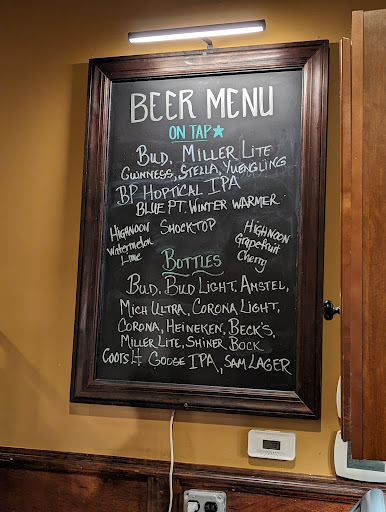 BEER MENU
ON TAP
BUD, MILLER LITE
GUINNESS, STELLA, YUENGLING
BP HOPTICAL IPA
BLUE PT. WINTER WARMER
HIGHNOON
Watermelon
Lime
SHOCKTOP
HIGHNOON
Grapefruit
Cherry
BOTTLES
BUD, BUD LIGHT, AMSTEL,
MICH ULTRA, CORONA LIGHT,
CORONA, HEINEKEN, BECK'S,
MILLER LITE, SHINER BOCK
COORS LT GOOSE IPA, SAM LAGER